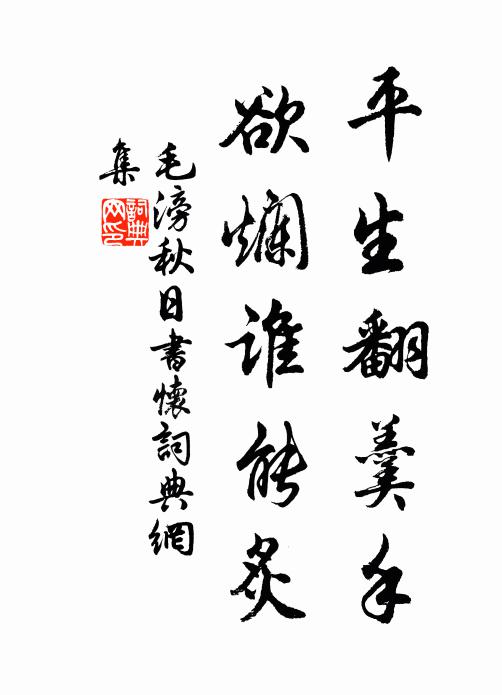 平生翻羹手
欲爛誰能炙
毛滂秋日書懷詞典網
集
詞典
网印